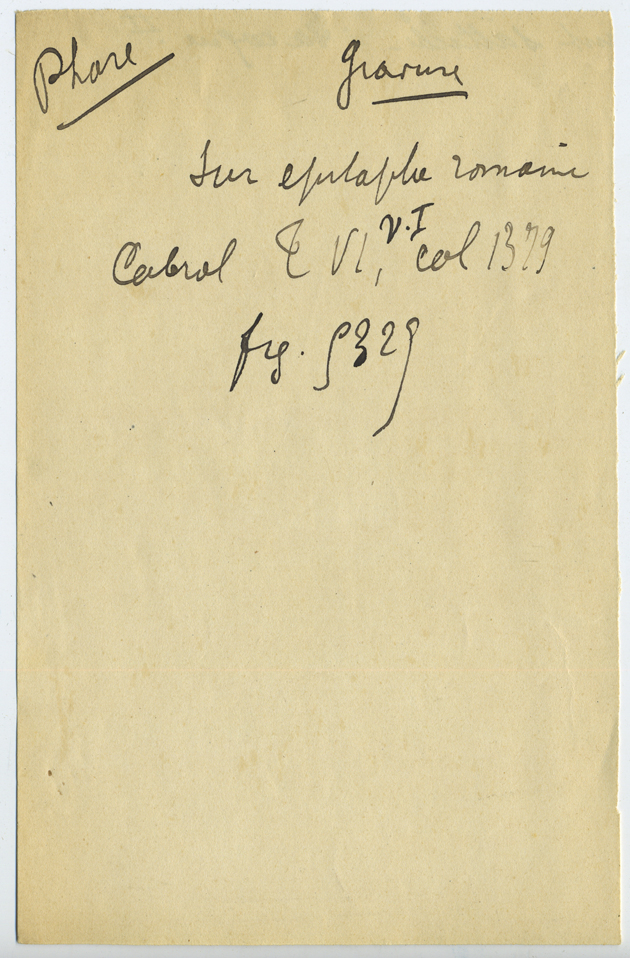 Phare
Gravure
Sur epitaphe romaine
Cabrol T VI, v.I col 1379
fig. 5329